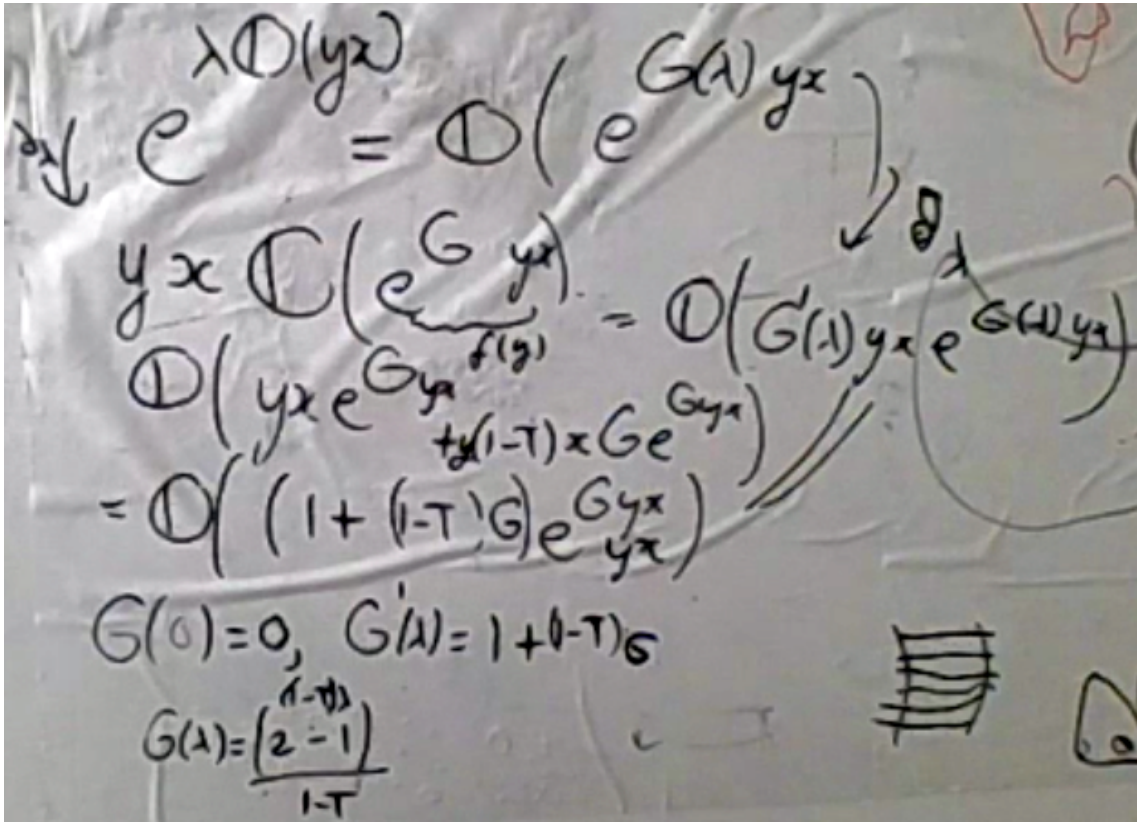 e^{λ𝔻(yx)} = 𝔻(e^{G(λ)yx})
∂_λ ↓ ↙ ∂_λ
yx 𝔻(e^{G yx}) = 𝔻(G'(λ)yx e^{G(λ)yx})
f(y)
𝔻(yx e^{Gyx} + y(1-T)x G e^{Gyx})
= 𝔻((1+(1-T)G)e^{Gyx} yx)
G(0)=0, G'(λ)=1+(1-T)G
G(λ)=(2^{(1-T)λ}-1)/(1-T)